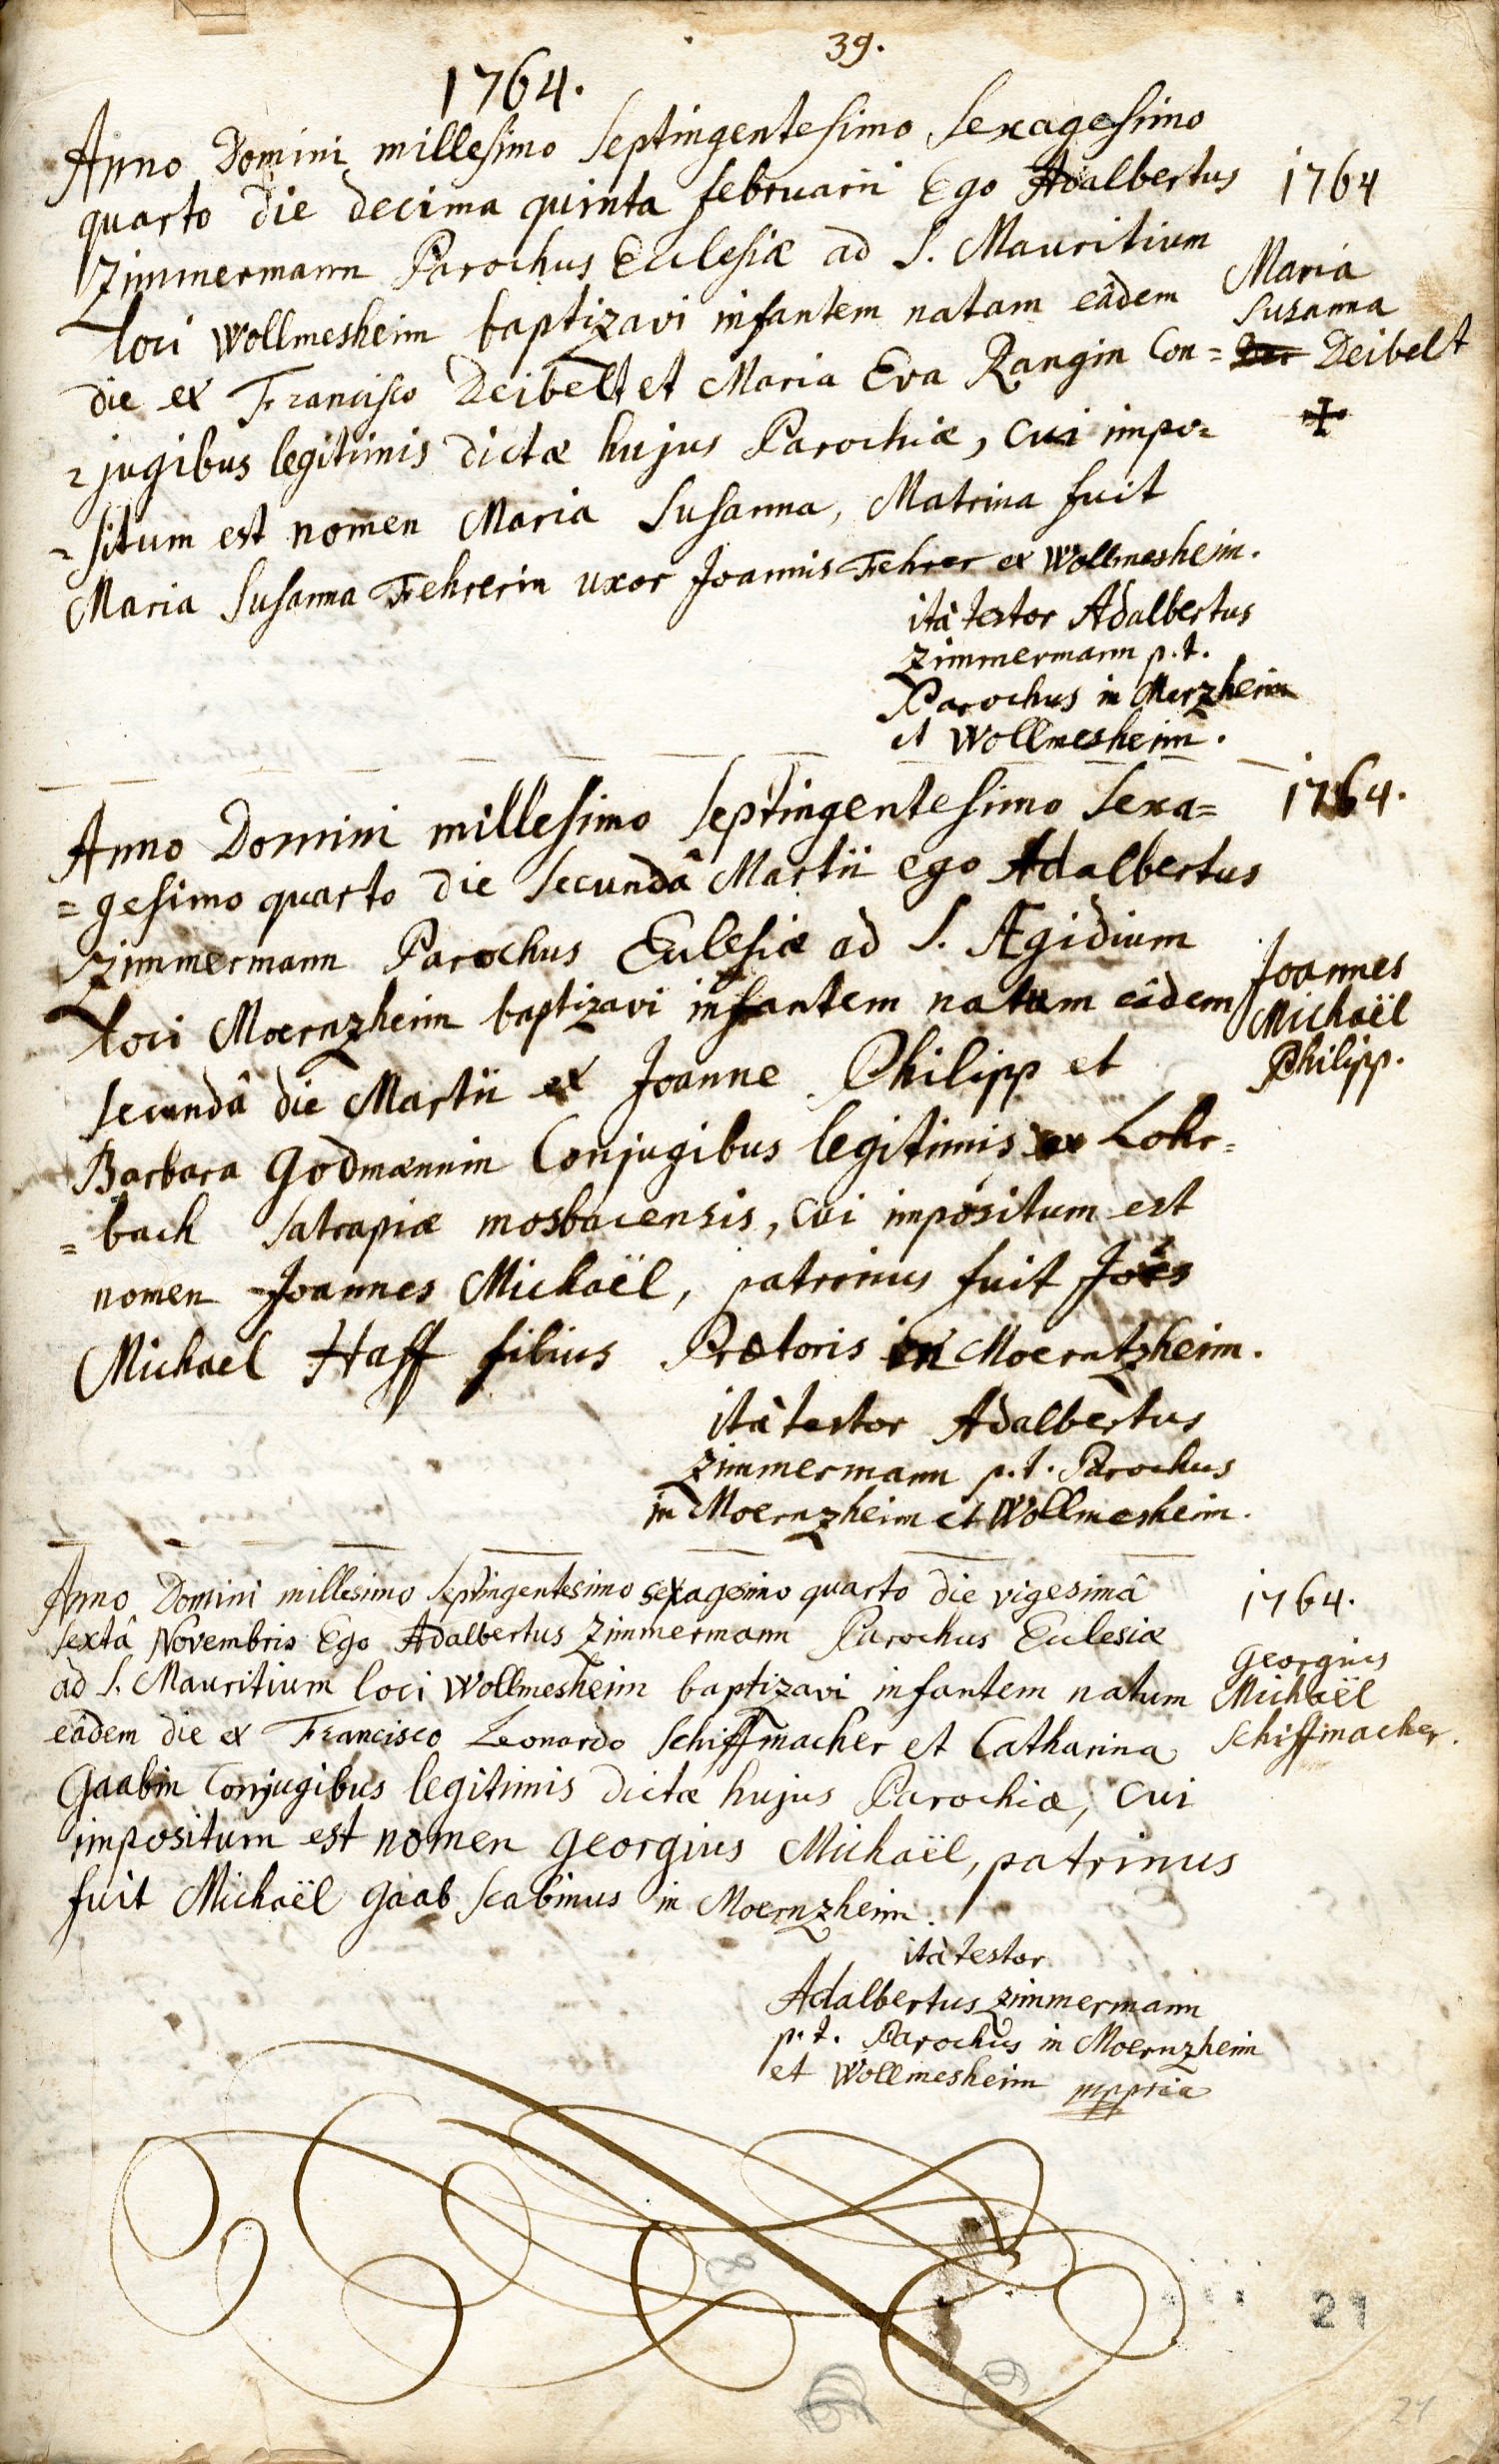 39.
1764.
Anno Domini millesimo Septingentesimo Sexagesimo
quarto die decima quinta februarii Ego Adalbertus
Zimmermann Parochus Ecclesiæ ad S. Mauritium
loci Wollmesheim baptizavi infantem natam eâdem
die ex Francisco Deibelt et Maria Eva Rangin Con=
=jugibus legitimis dictæ hujus Parochiæ, cui impo=
=situm est nomen Maria Susanna, Matrina fuit
Maria Susanna Fehrerin uxor Joannis Fehrer ex Wollmesheim.
1764
Maria
Susanna
Deibelt
itâ testor Adalbertus
Zimmermann p.t.
Parochus in Merzheim
et Wollmesheim.
Anno Domini millesimo Septingentesimo Sexa=
=gesimo quarto die secundâ Martii ego Adalbertus
Zimmermann Parochus Ecclesiæ ad S. Ægidium
loci Moernzheim baptizavi infantem natum eâdem
secundâ die Martii ex Joanne Philipp et
Barbara Godmannin Conjugibus legitimis ex Lohr=
=bach Satrapiæ mosbacensis, cui impositum est
nomen Joannes Michaël, patrinus fuit Joês
Michael Haff filius Prætoris in Moerntzheim.
1764.
Joannes
Michaël
Philipp.
itâ testor Adalbertus
Zimmermann p.t. Parochus
in Moernzheim et Wollmesheim.
Anno Domini millesimo Septingentesimo sexagesimo quarto die vigesimâ
sextâ Novembris Ego Adalbertus Zimmermann Parochus Ecclesiæ
ad S. Mauritium loci Wollmesheim baptizavi infantem natum
eâdem die ex Francisco Leonardo Schiffmacher et Catharina
Gaabin Conjugibus legitimis dictæ hujus Parochiæ, cui
impositum est nomen Georgius Michaël, patrinus
fuit Michaël Gaab Scabinus in Moernzheim.
1764.
Georgius
Michaël
Schiffmacher.
itâ testor
Adalbertus Zimmermann
p.t. Parochus in Moernzheim
et Wollmesheim mppria
21
21